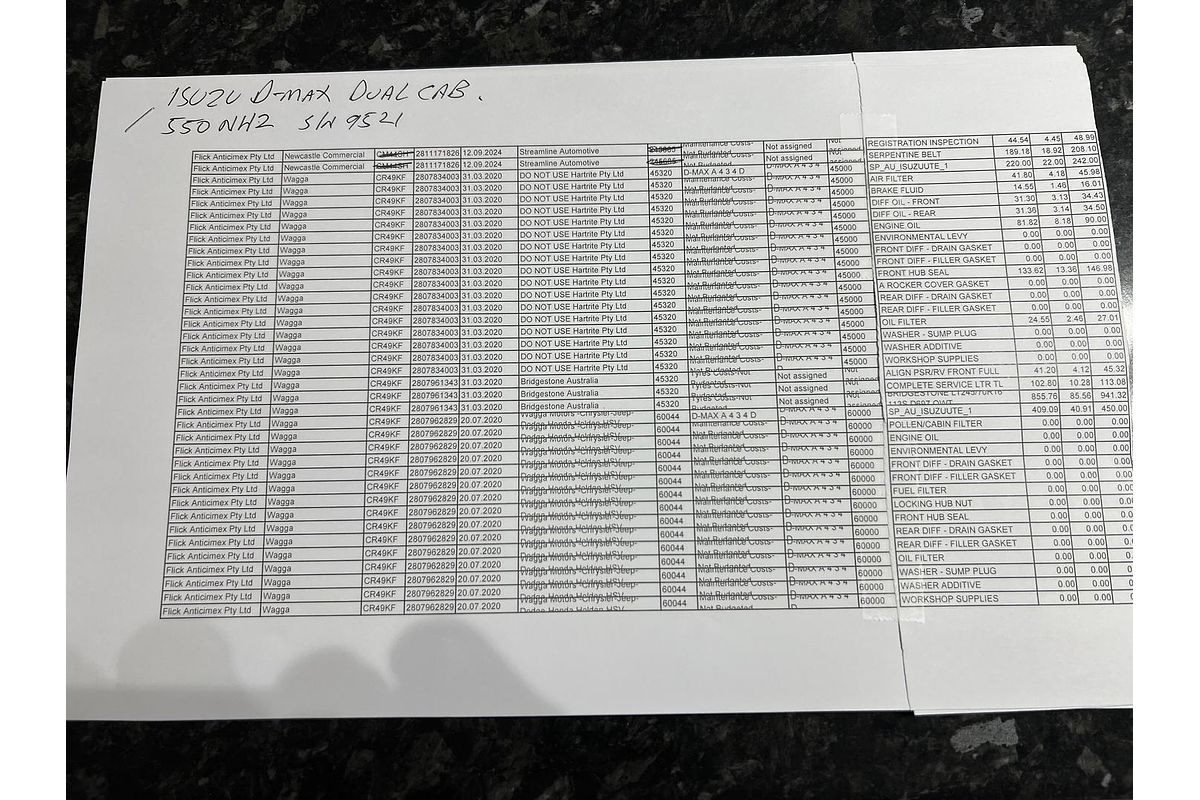 ISUZU D-MAX DUAL CAB.
550NH2 S/N 9521
Flick Anticimex Pty Ltd Newcastle Commercial CM44SH 2811171826 12.09.2024 Streamline Automotive Maintenance Costs- Not assigned Not REGISTRATION INSPECTION 44.54 4.45 48.99
Flick Anticimex Pty Ltd Newcastle Commercial CM44SH 2811171826 12.09.2024 Streamline Automotive Maintenance Costs- Not assigned Not SERPENTINE BELT 189.18 18.92 208.10
Flick Anticimex Pty Ltd Wagga CR49KF 2807834003 31.03.2020 DO NOT USE Hartrite Pty Ltd 45320 Maintenance Costs- D-MAX A 4 3 4 D 45000 SP_AU_ISUZUUTE_1 220.00 22.00 242.00
Flick Anticimex Pty Ltd Wagga CR49KF 2807834003 31.03.2020 DO NOT USE Hartrite Pty Ltd 45320 Maintenance Costs- D-MAX A 4 3 4 45000 AIR FILTER 41.80 4.18 45.98
Flick Anticimex Pty Ltd Wagga CR49KF 2807834003 31.03.2020 DO NOT USE Hartrite Pty Ltd 45320 Maintenance Costs- D-MAX A 4 3 4 45000 BRAKE FLUID 14.55 1.46 16.01
Flick Anticimex Pty Ltd Wagga CR49KF 2807834003 31.03.2020 DO NOT USE Hartrite Pty Ltd 45320 Maintenance Costs- D-MAX A 4 3 4 45000 DIFF OIL - FRONT 31.30 3.13 34.43
Flick Anticimex Pty Ltd Wagga CR49KF 2807834003 31.03.2020 DO NOT USE Hartrite Pty Ltd 45320 Maintenance Costs- D-MAX A 4 3 4 45000 DIFF OIL - REAR 31.36 3.14 34.50
Flick Anticimex Pty Ltd Wagga CR49KF 2807834003 31.03.2020 DO NOT USE Hartrite Pty Ltd 45320 Maintenance Costs- D-MAX A 4 3 4 45000 ENGINE OIL 81.82 8.18 90.00
Flick Anticimex Pty Ltd Wagga CR49KF 2807834003 31.03.2020 DO NOT USE Hartrite Pty Ltd 45320 Maintenance Costs- D-MAX A 4 3 4 45000 ENVIRONMENTAL LEVY 0.00 0.00 0.00
Flick Anticimex Pty Ltd Wagga CR49KF 2807834003 31.03.2020 DO NOT USE Hartrite Pty Ltd 45320 Maintenance Costs- D-MAX A 4 3 4 45000 FRONT DIFF - DRAIN GASKET 0.00 0.00 0.00
Flick Anticimex Pty Ltd Wagga CR49KF 2807834003 31.03.2020 DO NOT USE Hartrite Pty Ltd 45320 Maintenance Costs- D-MAX A 4 3 4 45000 FRONT DIFF - FILLER GASKET 0.00 0.00 0.00
Flick Anticimex Pty Ltd Wagga CR49KF 2807834003 31.03.2020 DO NOT USE Hartrite Pty Ltd 45320 Maintenance Costs- D-MAX A 4 3 4 45000 FRONT HUB SEAL 133.62 13.36 146.98
Flick Anticimex Pty Ltd Wagga CR49KF 2807834003 31.03.2020 DO NOT USE Hartrite Pty Ltd 45320 Maintenance Costs- D-MAX A 4 3 4 45000 A ROCKER COVER GASKET 0.00 0.00 0.00
Flick Anticimex Pty Ltd Wagga CR49KF 2807834003 31.03.2020 DO NOT USE Hartrite Pty Ltd 45320 Maintenance Costs- D-MAX A 4 3 4 45000 REAR DIFF - DRAIN GASKET 0.00 0.00 0.00
Flick Anticimex Pty Ltd Wagga CR49KF 2807834003 31.03.2020 DO NOT USE Hartrite Pty Ltd 45320 Maintenance Costs- D-MAX A 4 3 4 45000 REAR DIFF - FILLER GASKET 0.00 0.00 0.00
Flick Anticimex Pty Ltd Wagga CR49KF 2807834003 31.03.2020 DO NOT USE Hartrite Pty Ltd 45320 Maintenance Costs- D-MAX A 4 3 4 45000 OIL FILTER 24.55 2.46 27.01
Flick Anticimex Pty Ltd Wagga CR49KF 2807834003 31.03.2020 DO NOT USE Hartrite Pty Ltd 45320 Maintenance Costs- D-MAX A 4 3 4 45000 WASHER - SUMP PLUG 0.00 0.00 0.00
Flick Anticimex Pty Ltd Wagga CR49KF 2807834003 31.03.2020 DO NOT USE Hartrite Pty Ltd 45320 Maintenance Costs- D-MAX A 4 3 4 45000 WASHER ADDITIVE 0.00 0.00 0.00
Flick Anticimex Pty Ltd Wagga CR49KF 2807834003 31.03.2020 DO NOT USE Hartrite Pty Ltd 45320 Maintenance Costs- D-MAX A 4 3 4 45000 WORKSHOP SUPPLIES 0.00 0.00 0.00
Flick Anticimex Pty Ltd Wagga CR49KF 2807961343 31.03.2020 Bridgestone Australia 45320 Tyres Costs-Not Not assigned Not ALIGN PSR/RV FRONT FULL 41.20 4.12 45.32
Flick Anticimex Pty Ltd Wagga CR49KF 2807961343 31.03.2020 Bridgestone Australia 45320 Tyres Costs-Not Not assigned Not COMPLETE SERVICE LTR TL 102.80 10.28 113.08
Flick Anticimex Pty Ltd Wagga CR49KF 2807961343 31.03.2020 Bridgestone Australia 45320 Tyres Costs-Not Not assigned Not BRIDGESTONE LT245/70R16 855.76 85.56 941.32
Flick Anticimex Pty Ltd Wagga CR49KF 2807962829 20.07.2020 Wagga Motors -Chrysler-Jeep- 60044 Maintenance Costs- D-MAX A 4 3 4 D 60000 SP_AU_ISUZUUTE_1 409.09 40.91 450.00
Flick Anticimex Pty Ltd Wagga CR49KF 2807962829 20.07.2020 Wagga Motors -Chrysler-Jeep- 60044 Maintenance Costs- D-MAX A 4 3 4 60000 POLLEN/CABIN FILTER 0.00 0.00 0.00
Flick Anticimex Pty Ltd Wagga CR49KF 2807962829 20.07.2020 Wagga Motors -Chrysler-Jeep- 60044 Maintenance Costs- D-MAX A 4 3 4 60000 ENGINE OIL 0.00 0.00 0.00
Flick Anticimex Pty Ltd Wagga CR49KF 2807962829 20.07.2020 Wagga Motors -Chrysler-Jeep- 60044 Maintenance Costs- D-MAX A 4 3 4 60000 ENVIRONMENTAL LEVY 0.00 0.00 0.00
Flick Anticimex Pty Ltd Wagga CR49KF 2807962829 20.07.2020 Wagga Motors -Chrysler-Jeep- 60044 Maintenance Costs- D-MAX A 4 3 4 60000 FRONT DIFF - DRAIN GASKET 0.00 0.00 0.00
Flick Anticimex Pty Ltd Wagga CR49KF 2807962829 20.07.2020 Wagga Motors -Chrysler-Jeep- 60044 Maintenance Costs- D-MAX A 4 3 4 60000 FRONT DIFF - FILLER GASKET 0.00 0.00 0.00
Flick Anticimex Pty Ltd Wagga CR49KF 2807962829 20.07.2020 Wagga Motors -Chrysler-Jeep- 60044 Maintenance Costs- D-MAX A 4 3 4 60000 FUEL FILTER 0.00 0.00 0.00
Flick Anticimex Pty Ltd Wagga CR49KF 2807962829 20.07.2020 Wagga Motors -Chrysler-Jeep- 60044 Maintenance Costs- D-MAX A 4 3 4 60000 LOCKING HUB NUT 0.00 0.00 0.00
Flick Anticimex Pty Ltd Wagga CR49KF 2807962829 20.07.2020 Wagga Motors -Chrysler-Jeep- 60044 Maintenance Costs- D-MAX A 4 3 4 60000 FRONT HUB SEAL 0.00 0.00 0.
Flick Anticimex Pty Ltd Wagga CR49KF 2807962829 20.07.2020 Wagga Motors -Chrysler-Jeep- 60044 Maintenance Costs- D-MAX A 4 3 4 60000 REAR DIFF - DRAIN GASKET 0.00 0.00 0.
Flick Anticimex Pty Ltd Wagga CR49KF 2807962829 20.07.2020 Wagga Motors -Chrysler-Jeep- 60044 Maintenance Costs- D-MAX A 4 3 4 60000 REAR DIFF - FILLER GASKET 0.00 0.00 0.
Flick Anticimex Pty Ltd Wagga CR49KF 2807962829 20.07.2020 Wagga Motors -Chrysler-Jeep- 60044 Maintenance Costs- D-MAX A 4 3 4 60000 OIL FILTER 0.00 0.00 0.
Flick Anticimex Pty Ltd Wagga CR49KF 2807962829 20.07.2020 Wagga Motors -Chrysler-Jeep- 60044 Maintenance Costs- D-MAX A 4 3 4 60000 WASHER - SUMP PLUG 0.00 0.00 0.
Flick Anticimex Pty Ltd Wagga CR49KF 2807962829 20.07.2020 Wagga Motors -Chrysler-Jeep- 60044 Maintenance Costs- D-MAX A 4 3 4 60000 WASHER ADDITIVE 0.00 0.00 0.
Flick Anticimex Pty Ltd Wagga CR49KF 2807962829 20.07.2020 Wagga Motors -Chrysler-Jeep- 60044 Maintenance Costs- D-MAX A 4 3 4 60000 WORKSHOP SUPPLIES 0.00 0.00 0.